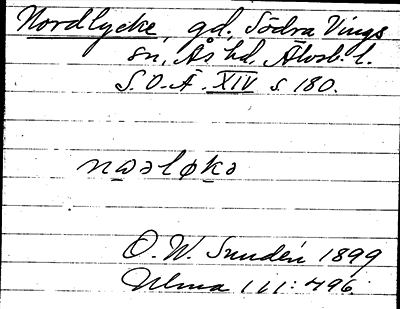 Nordlycke, gd, Södra Vings
sn, Ås hd, Älvsb. l.
S.O.Ä. XIV s. 180.
naəløkə
O. W. Sundén 1899
Ulma 111:496.